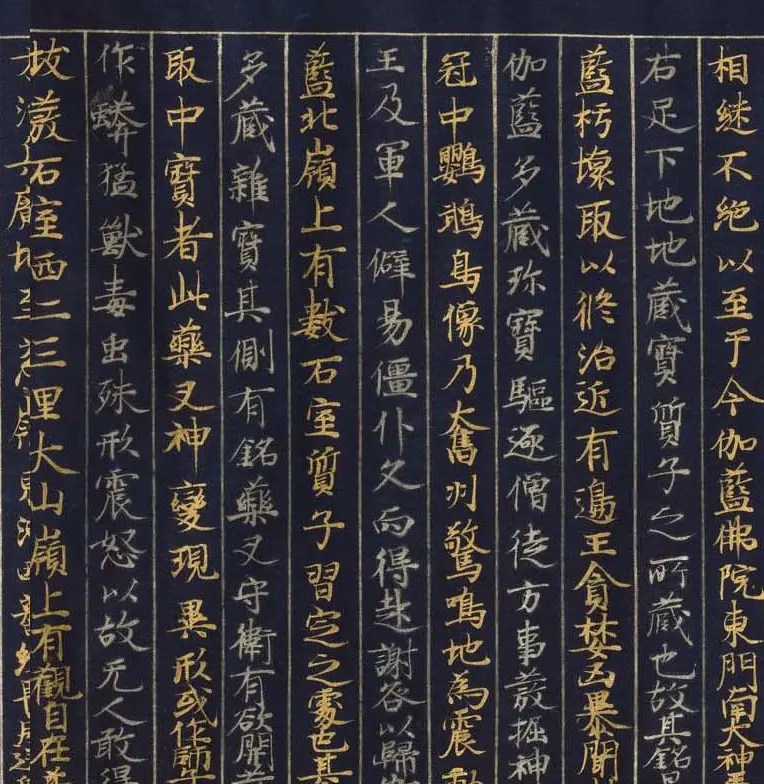 相継不絶以至于今伽藍佛院東門南大神
右足下地地蔵寶質子之所蔵也故其銘
藍朽壞取以修治近有邊王貪婪凶暴聞
伽藍多蔵珎寶驅逐僧徒方事發掘神
冠中鸚鵡鳥像乃奮羽驚鳴地為震
王及軍人僻易僵仆久而得起謝咎以歸
藍北嶺上有數石室質子習定之處也其
多蔵雜寶其側有銘藥叉守衛有欲開
取中寶者此藥叉神變現異形或作師
作蟒猛獸毒虫殊形震怒以故无人敢得
石室西二三里大山嶺上有觀自在